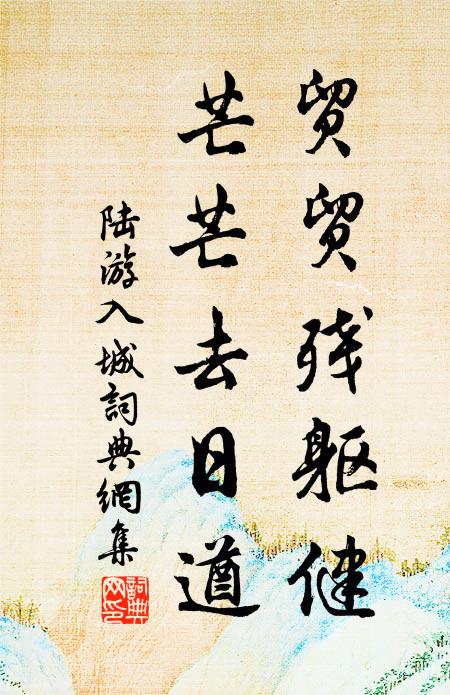 贸贸残躯健
芒芒去日遒
陆游入城詞典網集
詞典网印